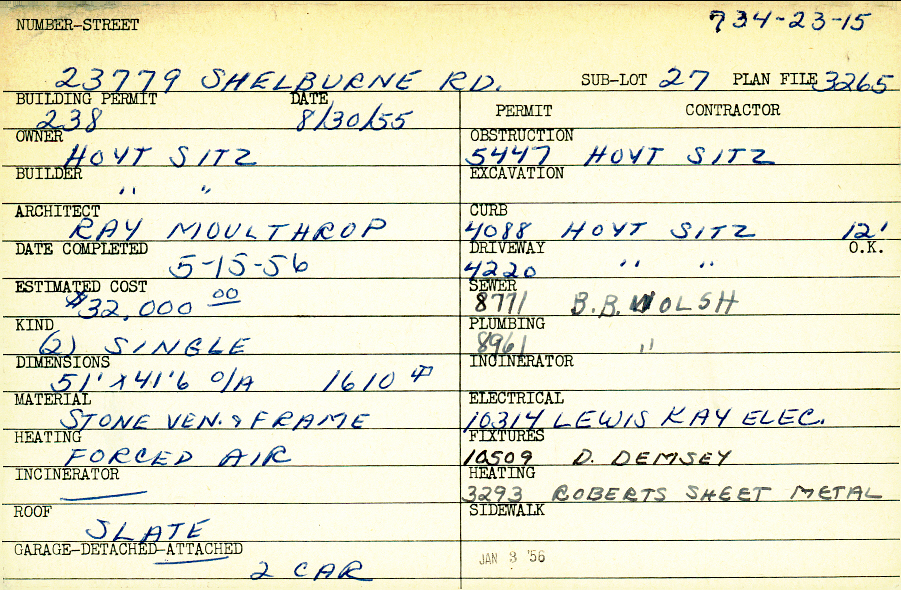 NUMBER-STREET 734-23-15
23779 SHELBURNE RD. SUB-LOT 27 PLAN FILE 3265
BUILDING PERMIT DATE
238 8/30/55
PERMIT CONTRACTOR
OWNER
HOYT SITZ
OBSTRUCTION
5447 HOYT SITZ
BUILDER
" "
EXCAVATION
ARCHITECT
RAY MOULTHROP
CURB
4088 HOYT SITZ 12'
DATE COMPLETED
5-15-56
DRIVEWAY O.K.
4220 " "
ESTIMATED COST
$32,000 00
SEWER
8771 B.B. WOLSH
KIND
(2) SINGLE
PLUMBING
8961 "
DIMENSIONS
51' X 41'6 O/A 1610
INCINERATOR
MATERIAL
STONE VEN. & FRAME
ELECTRICAL
10314 LEWIS KAY ELEC.
HEATING
FORCED AIR
FIXTURES
10509 D. DEMSEY
INCINERATOR
HEATING
3293 ROBERTS SHEET METAL
ROOF
SLATE
SIDEWALK
GARAGE-DETACHED-ATTACHED
2 CAR
JAN 3 '56